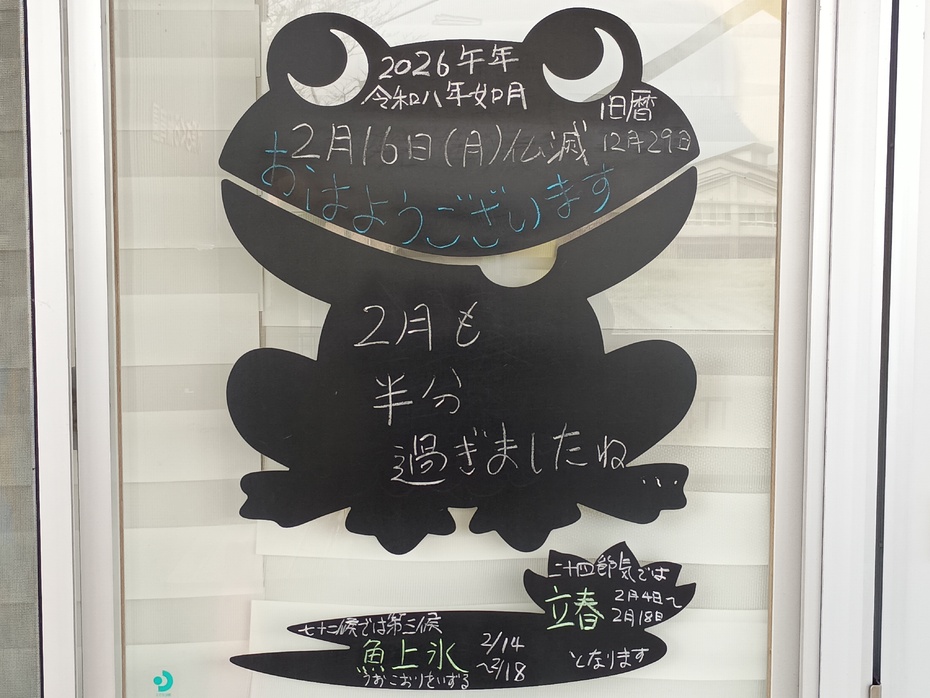 2026午年
令和八年如月
旧暦
12月29日
2月16日(月)仏滅
おはようございます
2月も
半分
過ぎましたね...
二十四節気では
立春
2月4日〜
2月18日
となります
七十二候では第三候
魚上氷
うおこおりをいずる
2/14
〜2/18